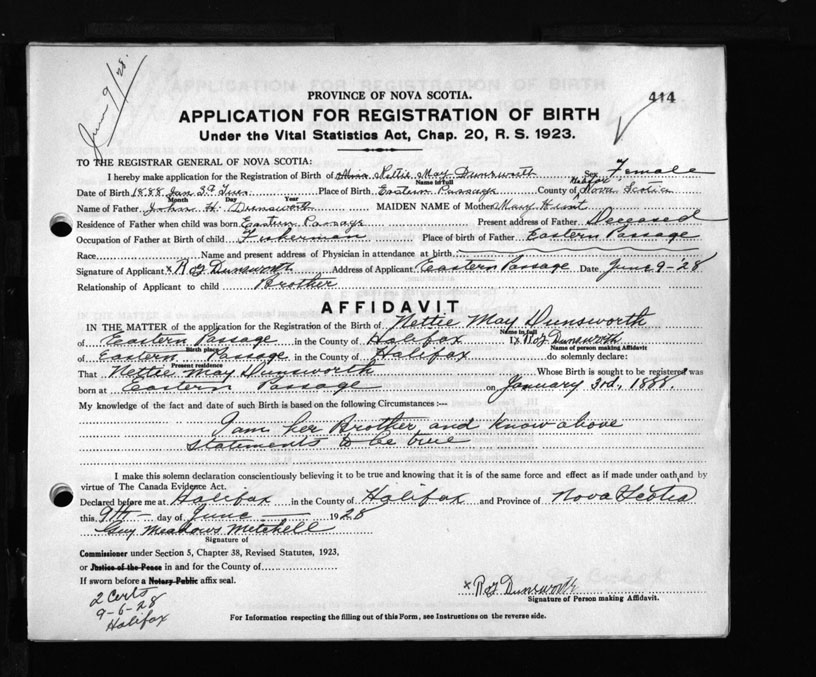 June 9/28.
414
PROVINCE OF NOVA SCOTIA.
APPLICATION FOR REGISTRATION OF BIRTH
Under the Vital Statistics Act, Chap. 20, R. S. 1923.
TO THE REGISTRAR GENERAL OF NOVA SCOTIA:
I hereby make application for the Registration of Birth of Nettie May Dunsworth Sex Female
Name in full
Halifax
Date of Birth 1888 Jan 3rd Tues Place of Birth Eastern Passage County of Nova Scotia
Month Day Year
Name of Father John H. Dunsworth MAIDEN NAME of Mother Mary Hunt
Residence of Father when child was born Eastern Passage Present address of Father Deceased
Occupation of Father at Birth of child Fisherman Place of Birth of Father Eastern Passage
Race Name and present address of Physician in attendance at birth
Signature of Applicant x R J Dunsworth Address of Applicant Eastern Passage Date June 9-'28
Relationship of Applicant to child Brother
AFFIDAVIT
IN THE MATTER of the application for the Registration of the Birth of Nettie May Dunsworth
Name in full
of Eastern Passage in the County of Halifax I x R J Dunsworth
Birth place Name of person making Affidavit
of Eastern Passage in the County of Halifax do solemnly declare:
Present residence
That Nettie May Dunsworth Whose Birth is sought to be registered was
born at Eastern Passage on January 3rd, 1888.
My knowledge of the fact and date of such Birth is based on the following Circumstances :--
I am her Brother and know above
statements to be true
I make this solemn declaration conscientiously believing it to be true and knowing that it is of the same force and effect as if made under oath and by
virtue of The Canada Evidence Act.
Declared before me at Halifax in the County of Halifax and Province of Nova Scotia
this 9th day of June 1928
Guy Meadows Mitchell
Signature of
Commissioner under Section 5, Chapter 38, Revised Statutes, 1923,
or Justice of the Peace in and for the County of
If sworn before a Notary Public affix seal.
x R J Dunsworth
Signature of Person making Affidavit.
2 Certs
9-6-28
Halifax
For Information respecting the filling out of this Form, see Instructions on the reverse side.